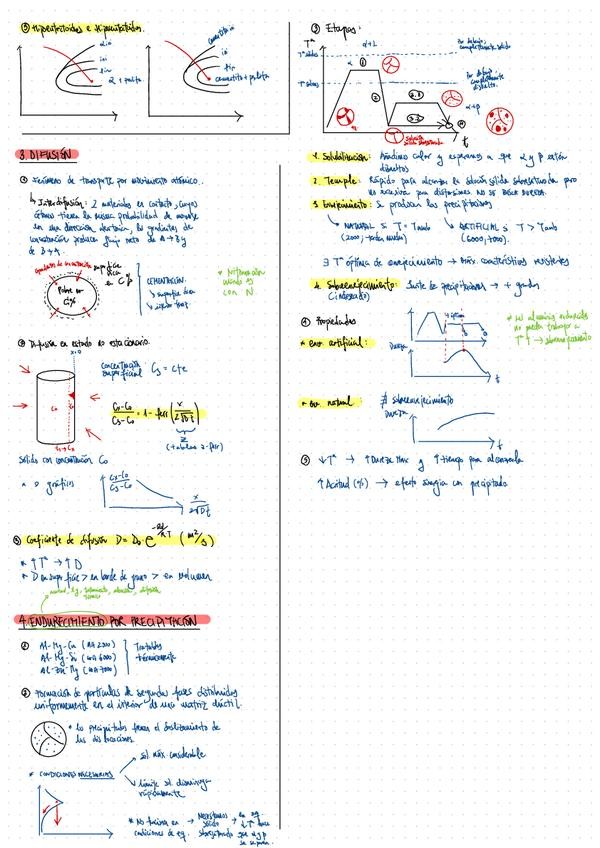 ⑤ Hipoeutectoides e Hipereutectoides.
α in
ini
fin
α + perlita
cementita in
ini
fin
cementita + perlita
3. DIFUSIÓN
① Fenómeno de transporte por movimiento atómico.
↳ Interdifusión: 2 materiales en contacto, cuyos
átomos tienen la misma probabilidad de moverse
en una dirección aleatoria, los gradientes de
concentración producen flujo neto de A → B y
de B → A.
Gradiente de concentración
superficie
rica
en C %
Pobre en
C%
CEMENTACIÓN:
↳ superficie dura
↳ interior tenaz
* Nitruración
cuando es
con N.
② Difusión en estado no estacionario.
x=0
Concentración
superficial
Cs = cte
C0
Cx-C0 / Cs-C0 = 1 - ferr (x / 2√Dt)
z
(→ tablas z-ferr)
Sólido con concentración C0
Cx-C0 / Cs-C0
x / 2√Dt
③ Coeficiente de difusión D = D0 · e^(-Qd/RT) (m²/s)
* ↑Tª → ↑D
* D en superficie > en borde de grano > en volumen
4. ENDURECIMIENTO POR PRECIPITACIÓN
① Al-Mg-Cu (AA 2000)
Al-Mg-Si (AA 6000)
Al-Zn-Mg (AA 7000)
Tratables
térmicamente
② Formación de partículas de segundas fases distribuidas
uniformemente en el interior de una matriz dúctil.
* los precipitados frenan el deslizamiento de
las dislocaciones
* CONDICIONES NECESARIAS
sol. máx. considerable
límite sol. disminuya
rápidamente
* No funciona en
condiciones de eq.
→ Necesitamos
sólido
sobresaturado
→ en eq.
↓Tª hace
que α y β
se separen.
③ Etapas:
Tª
Tª sólidus
Tª solvus
α+L
α
①
②
α+β
Por debajo,
completamente sólido
Por debajo,
completamente
disuelto.
solución
sólida sobresaturada
t
1. Solubilización: Añadimos calor y esperamos a que α y β estén
disueltos
2. Temple: Rápido para alcanzar la solución sólida sobresaturada pero
no excesiva para distorsiones NO SE BUSCA DUREZA.
3. Envejecimiento: Se producen los precipitados
↳ NATURAL si T = Tamb
↳ ARTIFICIAL si T > Tamb
(6000, 7000).
∃ Tª óptima de envejecimiento → máx. características resistentes
4. Sobreenvejecimiento:
(indeseado)
→ + grandes
④ Propiedades
* env. artificial:
t óptimo
Dureza
t
no pueden trabajar a
Tª ↑ → sobreenvejecimiento
* env. natural:
∄ sobreenvejecimiento
Dureza
t
⑤ ↓Tª → ↑Dureza Max y ↑tiempo para alcanzarla
↑Acritud (%) → efecto sinergia con precipitado